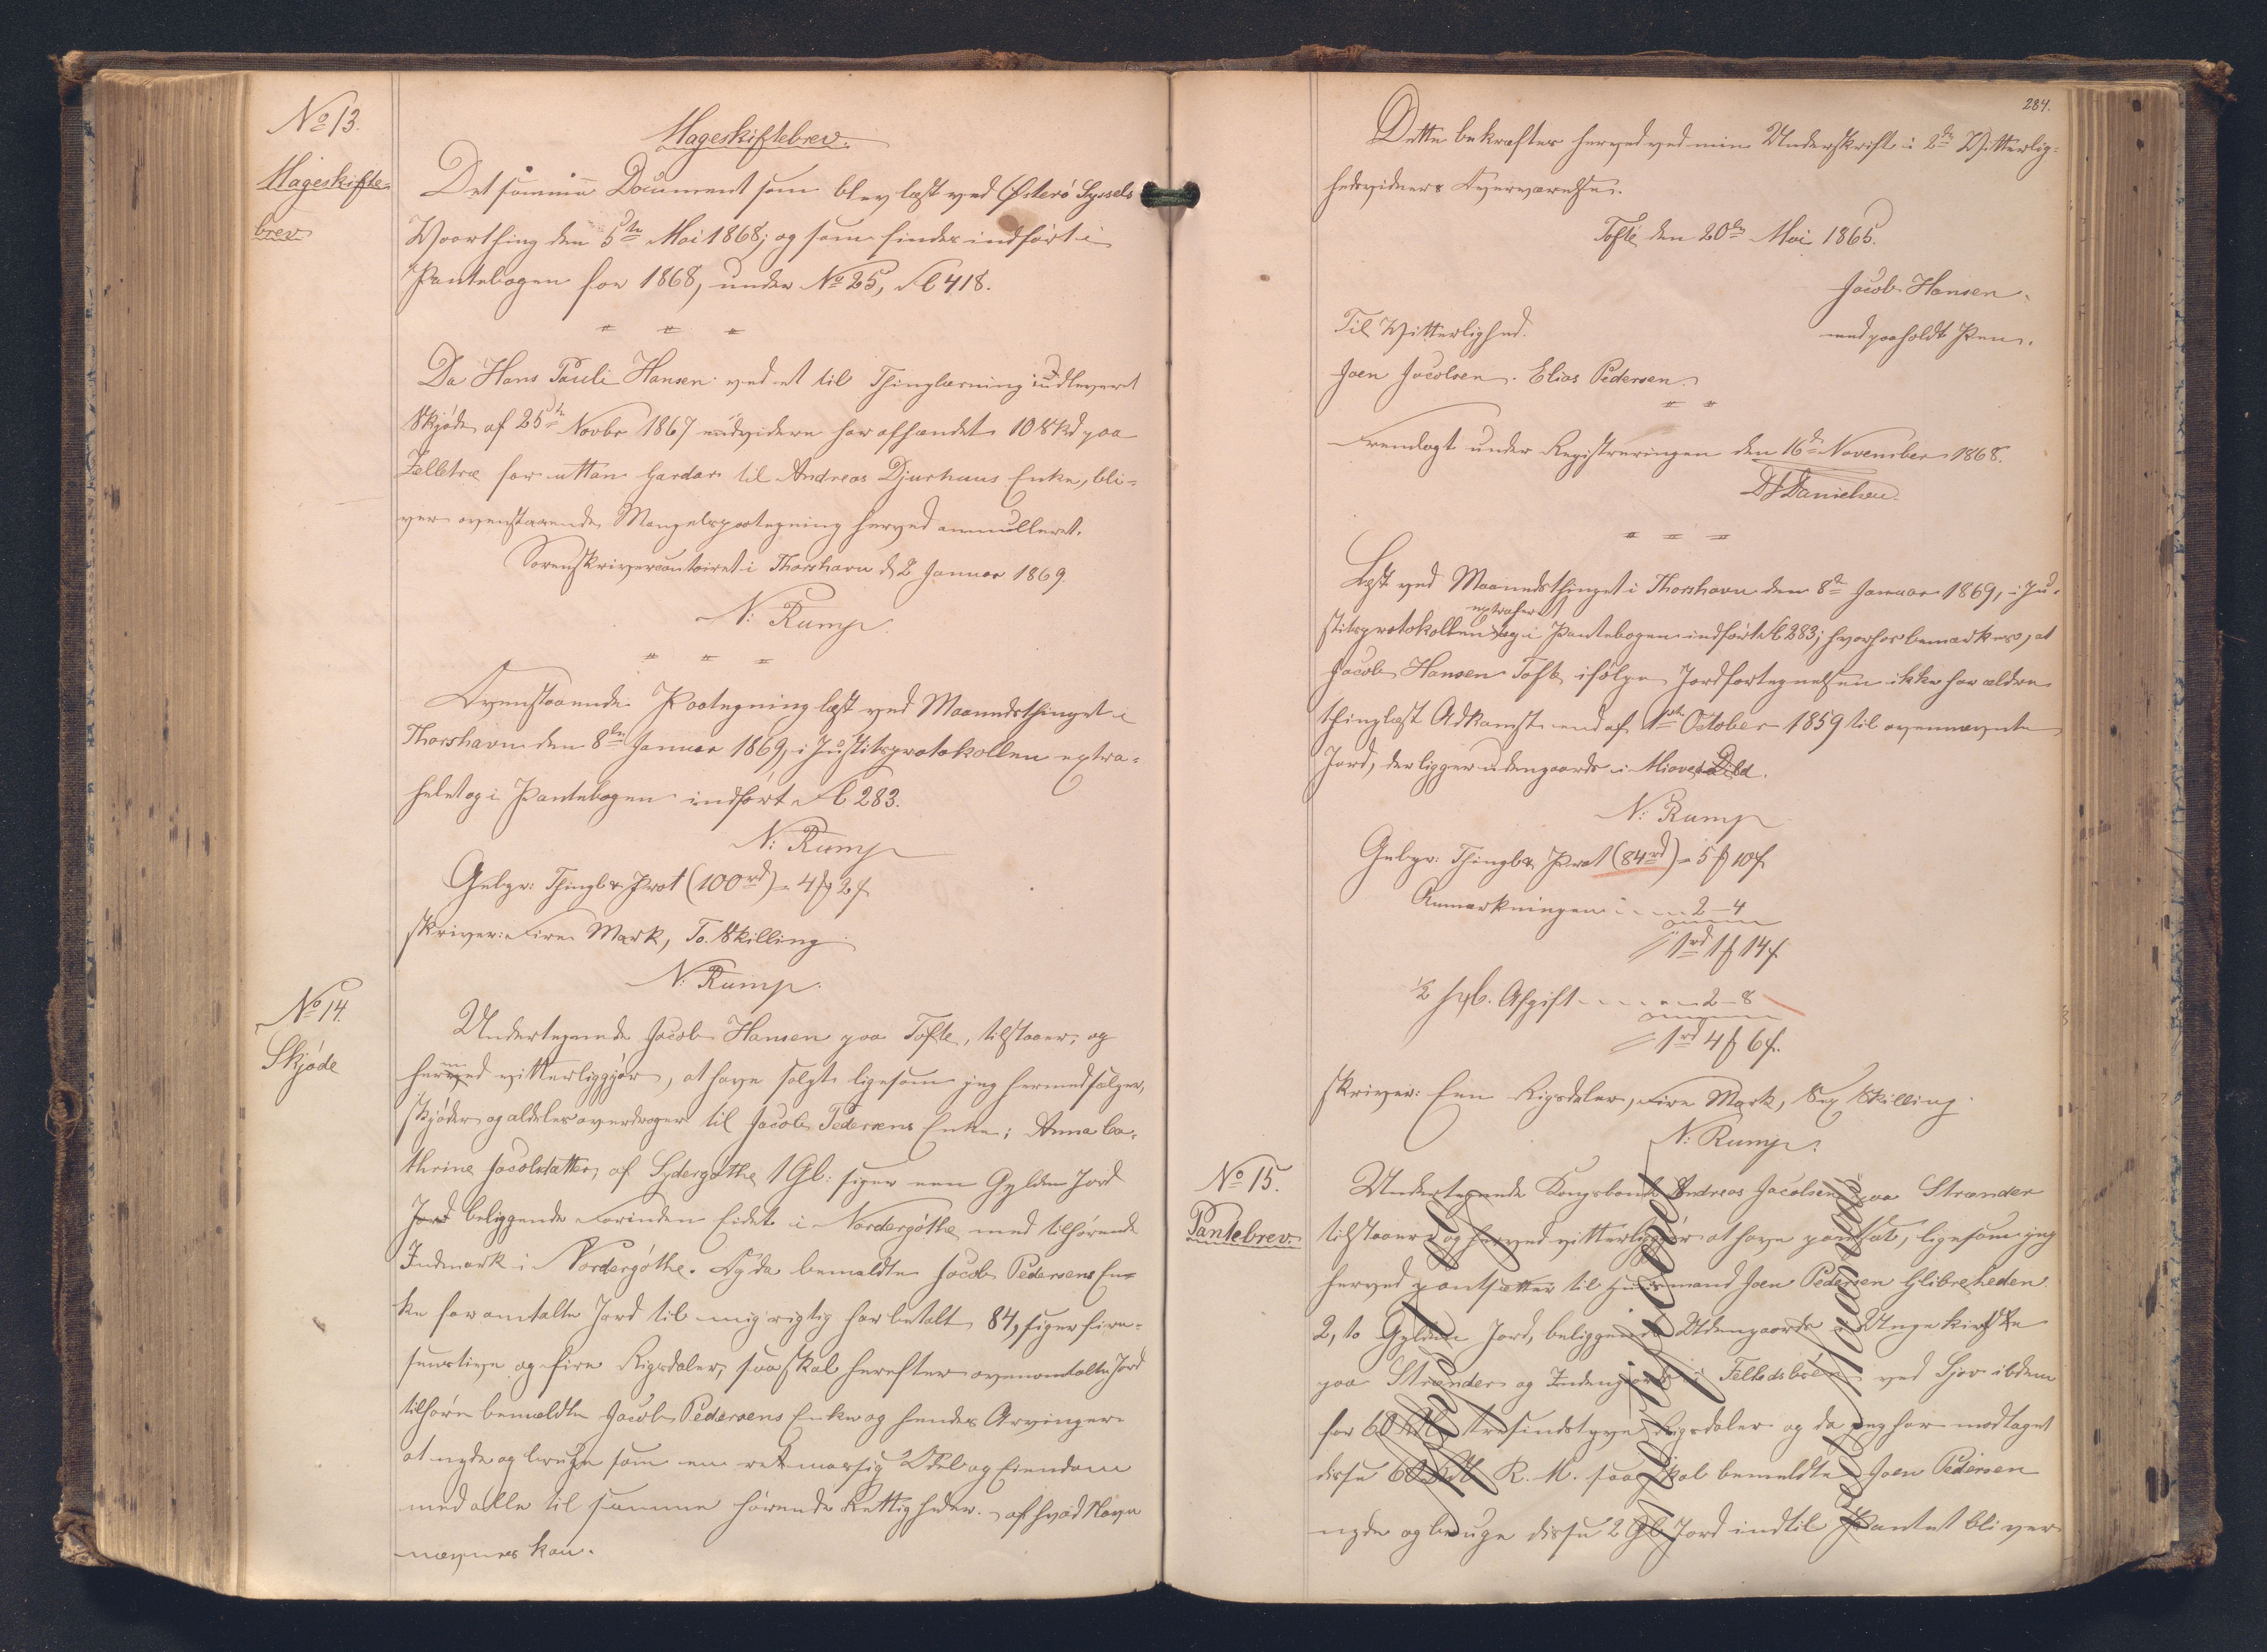 No 13.
Mageskifte-
brev
Mageskiftebrev.
Det samme Document som blev læst ved Østerö Syssels
Voorthing den 5te Mai 1868; og som findes indført i
Pantebogen for 1868, under No 25, Fol 418.
Da Hans Pauli Hansen ved et til Thinglæsning indleveret
Skjøde af 25de Novbr 1867 endvidere har afhændet 10 Skd paa
Selletræ for uttan Gardar til Andreas Djurhuus Enke, bli-
ver ovenstaaende Mangelspaategning herved annulleret.
Sorenskrivercontoiret i Thorshavn d. 2 Januar 1869.
N: Rump.
Ovenstaaende Paategning læst ved Maanedsthinget i
Thorshavn den 8de Januar 1869, i Justitsprotokollen extra-
heret og i Pantebogen indført Fol 283.
N: Rump
Gebyr: Thingl & Prot (100rd) = 4 ℳ 2 ß
skriver: Fire Mark, To Skilling
N: Rump.
No 14.
Skjøde
Undertegnede Jacob Hansen paa Tofte, tilstaaer, og
herved vitterliggjør, at have solgt ligesom jeg hermed sælger,
skjøder og aldeles overdrager til Jacob Pedersens Enke; Anna Ca-
thrine Jacobsdatter, af Sydergøthe 1 Gl: siger een Gylden Jord
Jord beliggende Forinden Eidet i Nordergøthe med tilhørende
Indmark i Nordergøthe. Og da bemeldte Jacob Pedersens En-
ke for omtalte Jord til mig rigtig har betalt 84, siger fire-
seustive og fire Rigsdaler, saa skal herefter ovenomtalte Jord
tilhøre bemeldte Jacob Pedersens Enke og hendes Arvinger
at nyde og bruge som en retmæssig Odel og Eiendom
med alle til samme hørende Rettigheder. af hvad Navn
nævnes kan.
284.
Dette bekræftes herved ved min Underskrift i 2de Vitterlig-
hedsvidners Overværelse.
Tofte, den 20de Mai 1865.
Jacob Hansen
med paaholdt Pen.
Til Vitterlighed.
Joen Jacobsen. Elias Pedersen.
Fremlagt under Registreringen den 16de November 1868.
Danielsen.
Læst ved Maanedsthinget i Thorshavn den 8de Januar 1869, i Ju-
stitsprotokollen extraheret og i Pantebogen indført Fol 283; hvorhos bemærkes, at
Jacob Hansen Tofte ifølge Jordfortegnelsen ikke har ældre
thinglæst Adkomst end af 1ste October 1859 til ovennævnte
Jord, der ligger udengaards i
N: Rump
Gebyr: Thingl & Prot (84rd) = 5 ℳ 10 ß
Anmærkningen 2 - 4
1rd 1 ℳ 14 ß
½ Afgift 2 - 8
1rd 4 ℳ 6 ß.
skriver: Een Rigsdaler, Fire Mark, Sex Skilling.
N: Rump.
No 15.
Pantebrev
Undertegnede Kongsbonde Andreas Jacobsen paa Strænder
tilstaaer og herved vitterliggjør at have pantsat, ligesom jeg
herved pantsætter til Huusmand Joen Pedersen Glibreheden
2, to Gylden Jord, beliggende Udengaards i
paa Strænder og Indengaards i ved Sjov ibdem
for 60 Rdl, tresindstyve Rigsdaler og da jeg har modtaget
disse 60 Rdl R. M. saa skal bemeldte Joen Pedersen
nyde og bruge disse 2 Gl Jord indtil Pantet bliver